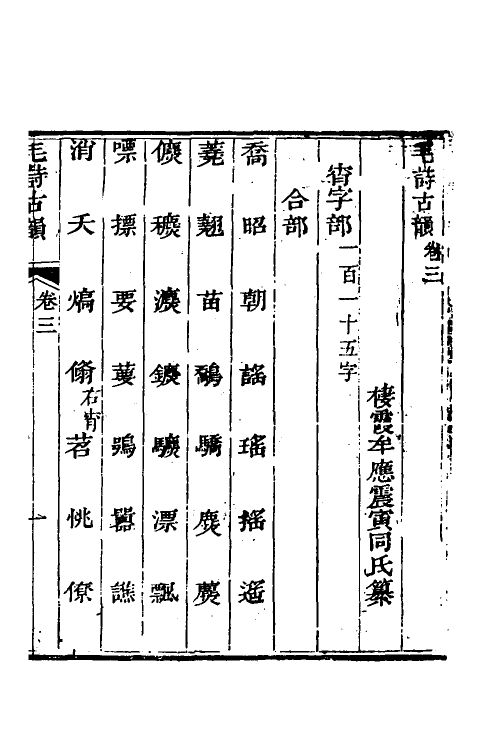 毛詩古韻卷三
棲霞牟應震寅同氏纂
宵字部一百一十五字
合部
喬昭朝謠瑤搖遙
蕘翹苗鷮驕麃藨
儦穮瀌鑣驫漂飄
嘌摽要葽鴞囂譙
消夭熇翛右宵苕恌僚
毛詩古韻
卷三
一